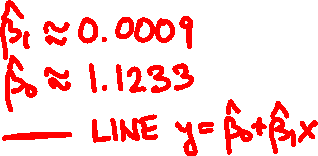 β̂₁ ≈ 0.0009
β̂₀ ≈ 1.1233
— LINE y = β̂₀ + β̂₁x